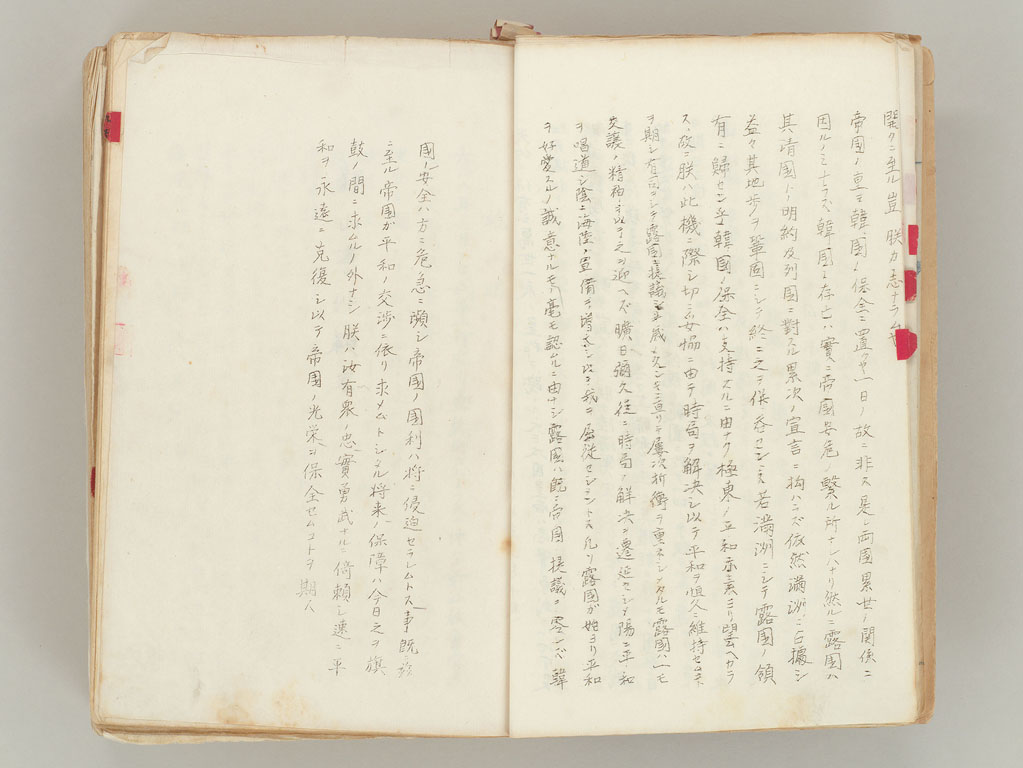 釁ヲ開クニ至ル豈朕カ志ナラムヤ
帝国ノ重ヲ韓国ノ保全ニ置クヤ一日ノ故ニ非ス是レ両国累世ノ関係ニ
因ルノミナラズ韓国ノ存亡ハ實ニ帝国安危ノ繋ル所ナレハナリ然ルニ露国ハ
其清国トノ明約及列国ニ対スル累次ノ宣言ニ拘ハラズ依然満洲ニ占據シ
益々其地歩ヲ鞏固ニシテ終ニ之ヲ併呑セントス若満洲ニシテ露国ノ領
有ニ歸セン乎韓国ノ保全ハ支持スルニ由ナク極東ノ平和亦素ヨリ望ムヘカラ
ス故ニ朕ハ此機ニ際シ切ニ妥協ニ由テ時局ヲ解決シ以テ平和ヲ恒久ニ維持セムコトヲ
ヲ期シ有司ヲシテ露国ニ提議シ半歳ノ久シキニ亘リテ屡次折衝ヲ重ネシメタルモ露国ハ一モ
交譲ノ精神ヲ以テ之ヲ迎ヘズ曠日彌久徒ニ時局ノ解決ヲ遷延セシメ陽ニ平和
ヲ唱道シ陰ニ海陸ノ軍備ヲ増大シ以テ我ヲ屈従セシメントス凡ソ露国ガ始ヨリ平和
ヲ好愛スルノ誠意ナルモノ毫モ認ムルニ由ナシ露国ハ既ニ帝国ノ提議ヲ容レズ韓
国ノ安全ハ方ニ危急ニ瀕シ帝国ノ国利ハ将ニ侵迫セラレムトス事既茲
ニ至ル帝国ガ平和ノ交渉ニ依リ求メムトシタル将来ノ保障ハ今日之ヲ旗
鼓ノ間ニ求ムルノ外ナシ朕ハ汝有衆ノ忠實勇武ナルニ倚頼シ速ニ平
和ヲ永遠ニ克復シ以テ帝国ノ光栄ヲ保全セムコトヲ期ス